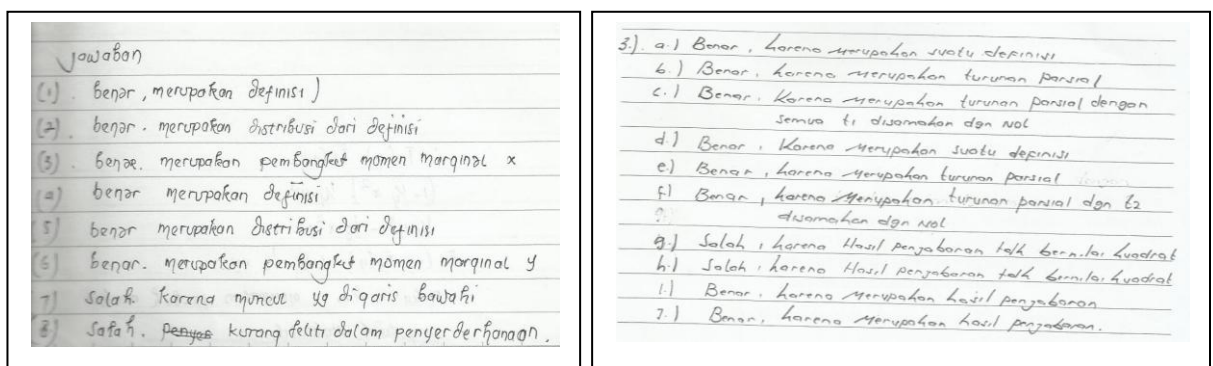 Jawaban
(1). benar, merupakan definisi)
(2). benar. merupakan distribusi dari definisi
(3). benar. merupakan pembangkit momen marginal x
(4) benar merupakan definisi
(5) benar merupakan distribusi dari definisi
(6) benar. merupakan pembangkit momen marginal y
7) Salah. karena muncul yg digaris bawahi
8) Salah. Penyes kurang teliti dalam penyerderhanaan.
3.). a.) Benar, karena merupakan suatu definisi
b.) Benar, karena merupakan turunan parsial
c.) Benar. Karena merupakan turunan parsial dengan
semua ti disamakan dgn Nol
d.) Benar. Karena merupakan suatu definisi
e.) Benar, karena merupakan turunan parsial
f.) Benar, karena merupakan turunan parsial dgn t2
disamakan dgn Nol
g.) Salah, karena Hasil penjabaran tdk bernilai kuadrat
h.) Salah, karena Hasil penjabaran tdk bernilai kuadrat
i.) Benar. karena merupakan hasil penjabaran
j.) Benar, karena merupakan hasil penjabaran.